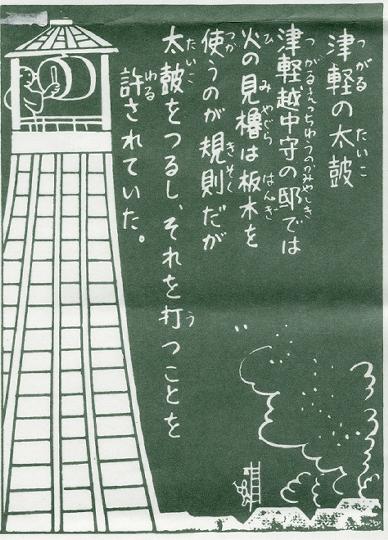 津軽の太鼓
津軽越中守の邸では
火の見櫓は板木を
使うのが規則だが
太鼓をつるし、それを打つことを
許されていた。